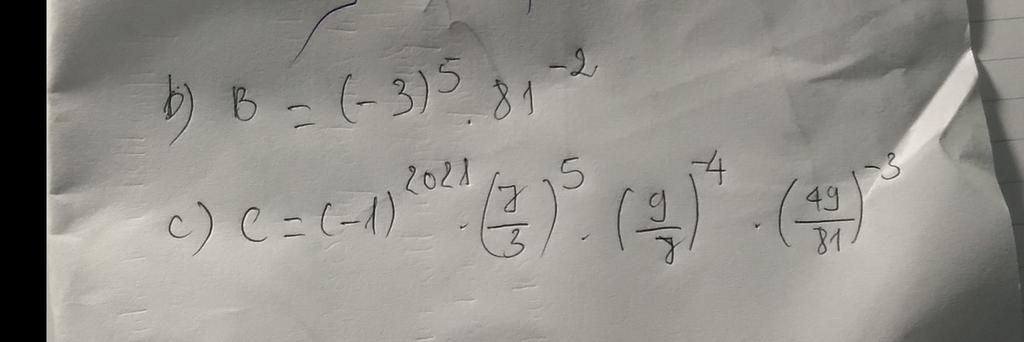 b) B = (-3)^5 . 81^-2
c) C = (-1)^2021 . (7/3)^5 . (9/7)^-4 . (49/81)^-3